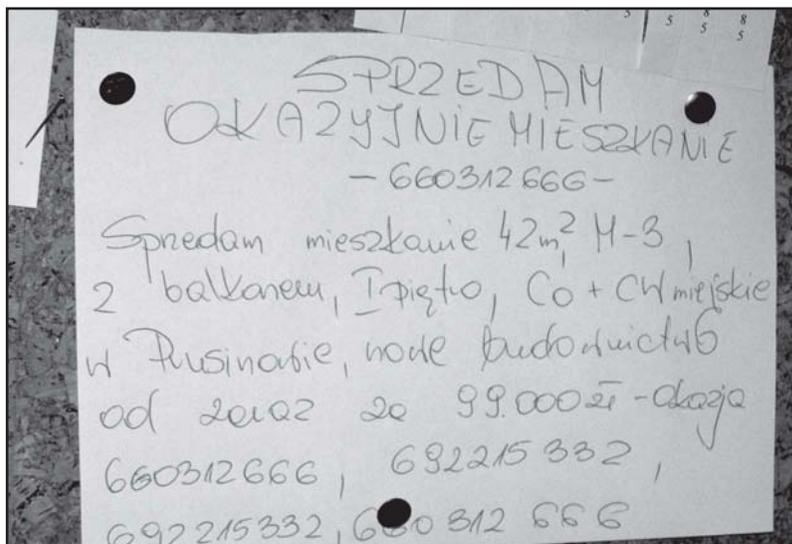 5 8 8
5 5 5
SPRZEDAM
OKAZYJNIE MIESZKANIE
-660312666-
Sprzedam mieszkanie 42m², M-3,
z balkonem, I piętro, CO + CW miejskie
w Prusinowie, nowe budownictwo
od zaraz za 99.000 zł - okazja
660312666, 692215332,
692215332, 660 312 666